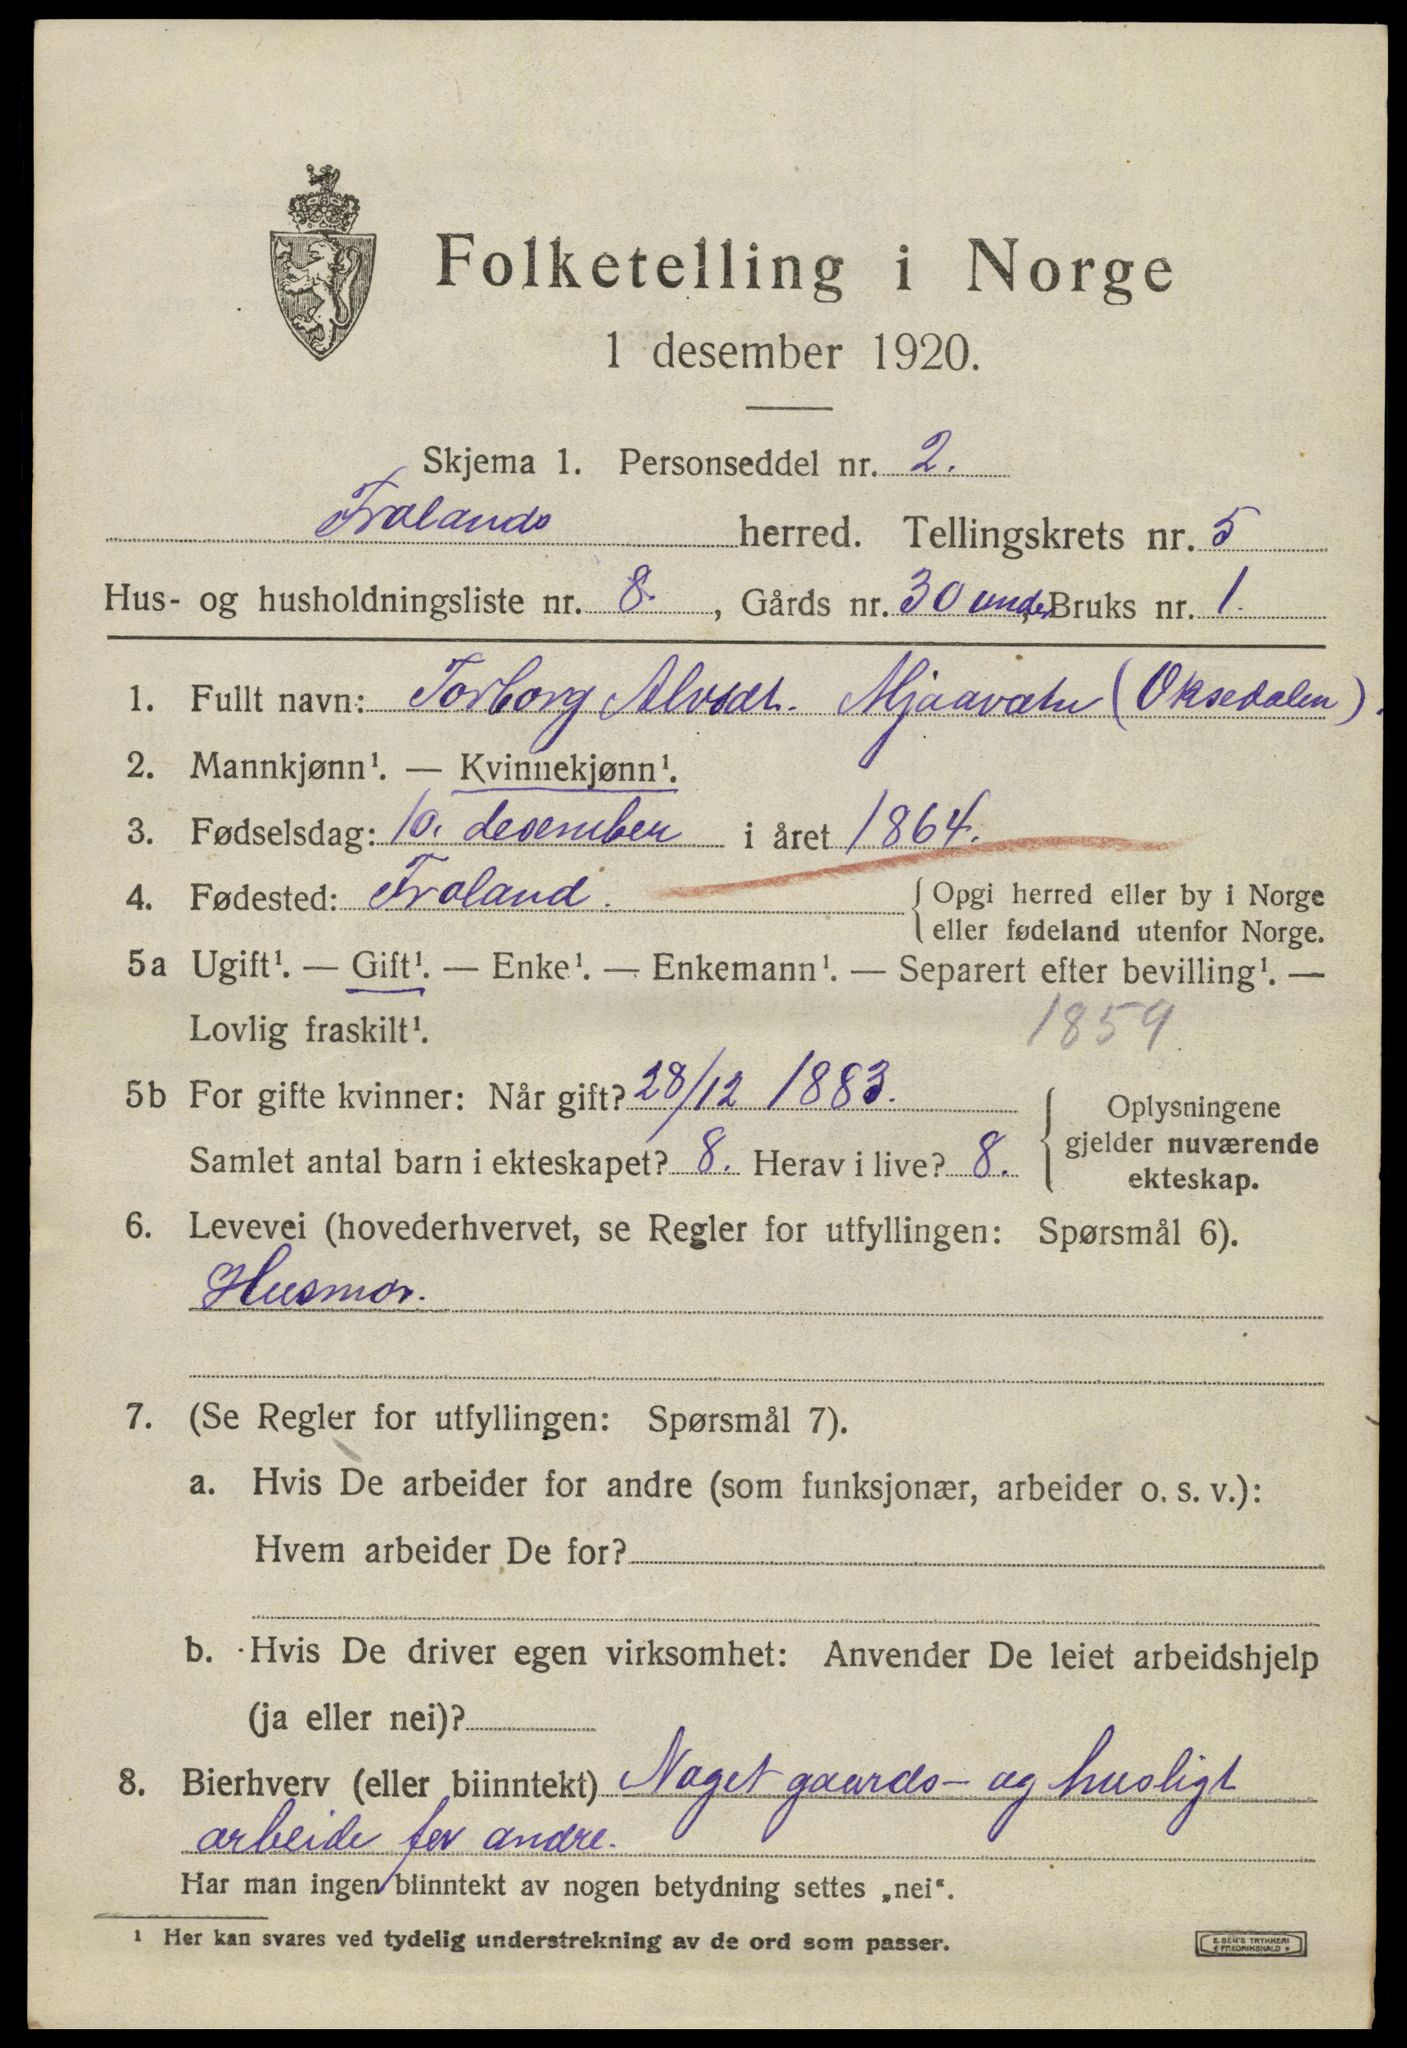 Folketelling i Norge
1 desember 1920.
Skjema 1. Personseddel nr. 2.
Frolands herred. Tellingskrets nr. 5
Hus- og husholdningsliste nr. 8. , Gårds nr. 30 under, Bruks nr. 1.
1. Fullt navn: Torborg Alvsdt. Mjaavatn (Oksedalen).
2. Mannkjønn¹. — Kvinnekjønn¹.
3. Fødselsdag: 10. desember i året 1864.
4. Fødested: Froland. { Opgi herred eller by i Norge
eller fødeland utenfor Norge.
5a Ugift¹. — Gift¹. — Enke¹. — Enkemann¹. — Separert efter bevilling¹. —
Lovlig fraskilt¹. 1859
5b For gifte kvinner: Når gift? 28/12 1883.
Samlet antal barn i ekteskapet? 8. Herav i live? 8.
{ Oplysningene
gjelder nuværende
ekteskap.
6. Levevei (hovederhvervet, se Regler for utfyllingen: Spørsmål 6).
Husmor.
7. (Se Regler for utfyllingen: Spørsmål 7).
a. Hvis De arbeider for andre (som funksjonær, arbeider o. s. v.):
Hvem arbeider De for?
b. Hvis De driver egen virksomhet: Anvender De leiet arbeidshjelp
(ja eller nei)?
8. Bierhverv (eller biinntekt) Noget gaards- og husligt
arbeide for andre.
Har man ingen biinntekt av nogen betydning settes „nei“.
¹ Her kan svares ved tydelig understrekning av de ord som passer.
E. SEM'S TRYKKERI
FREDRIKSHALD